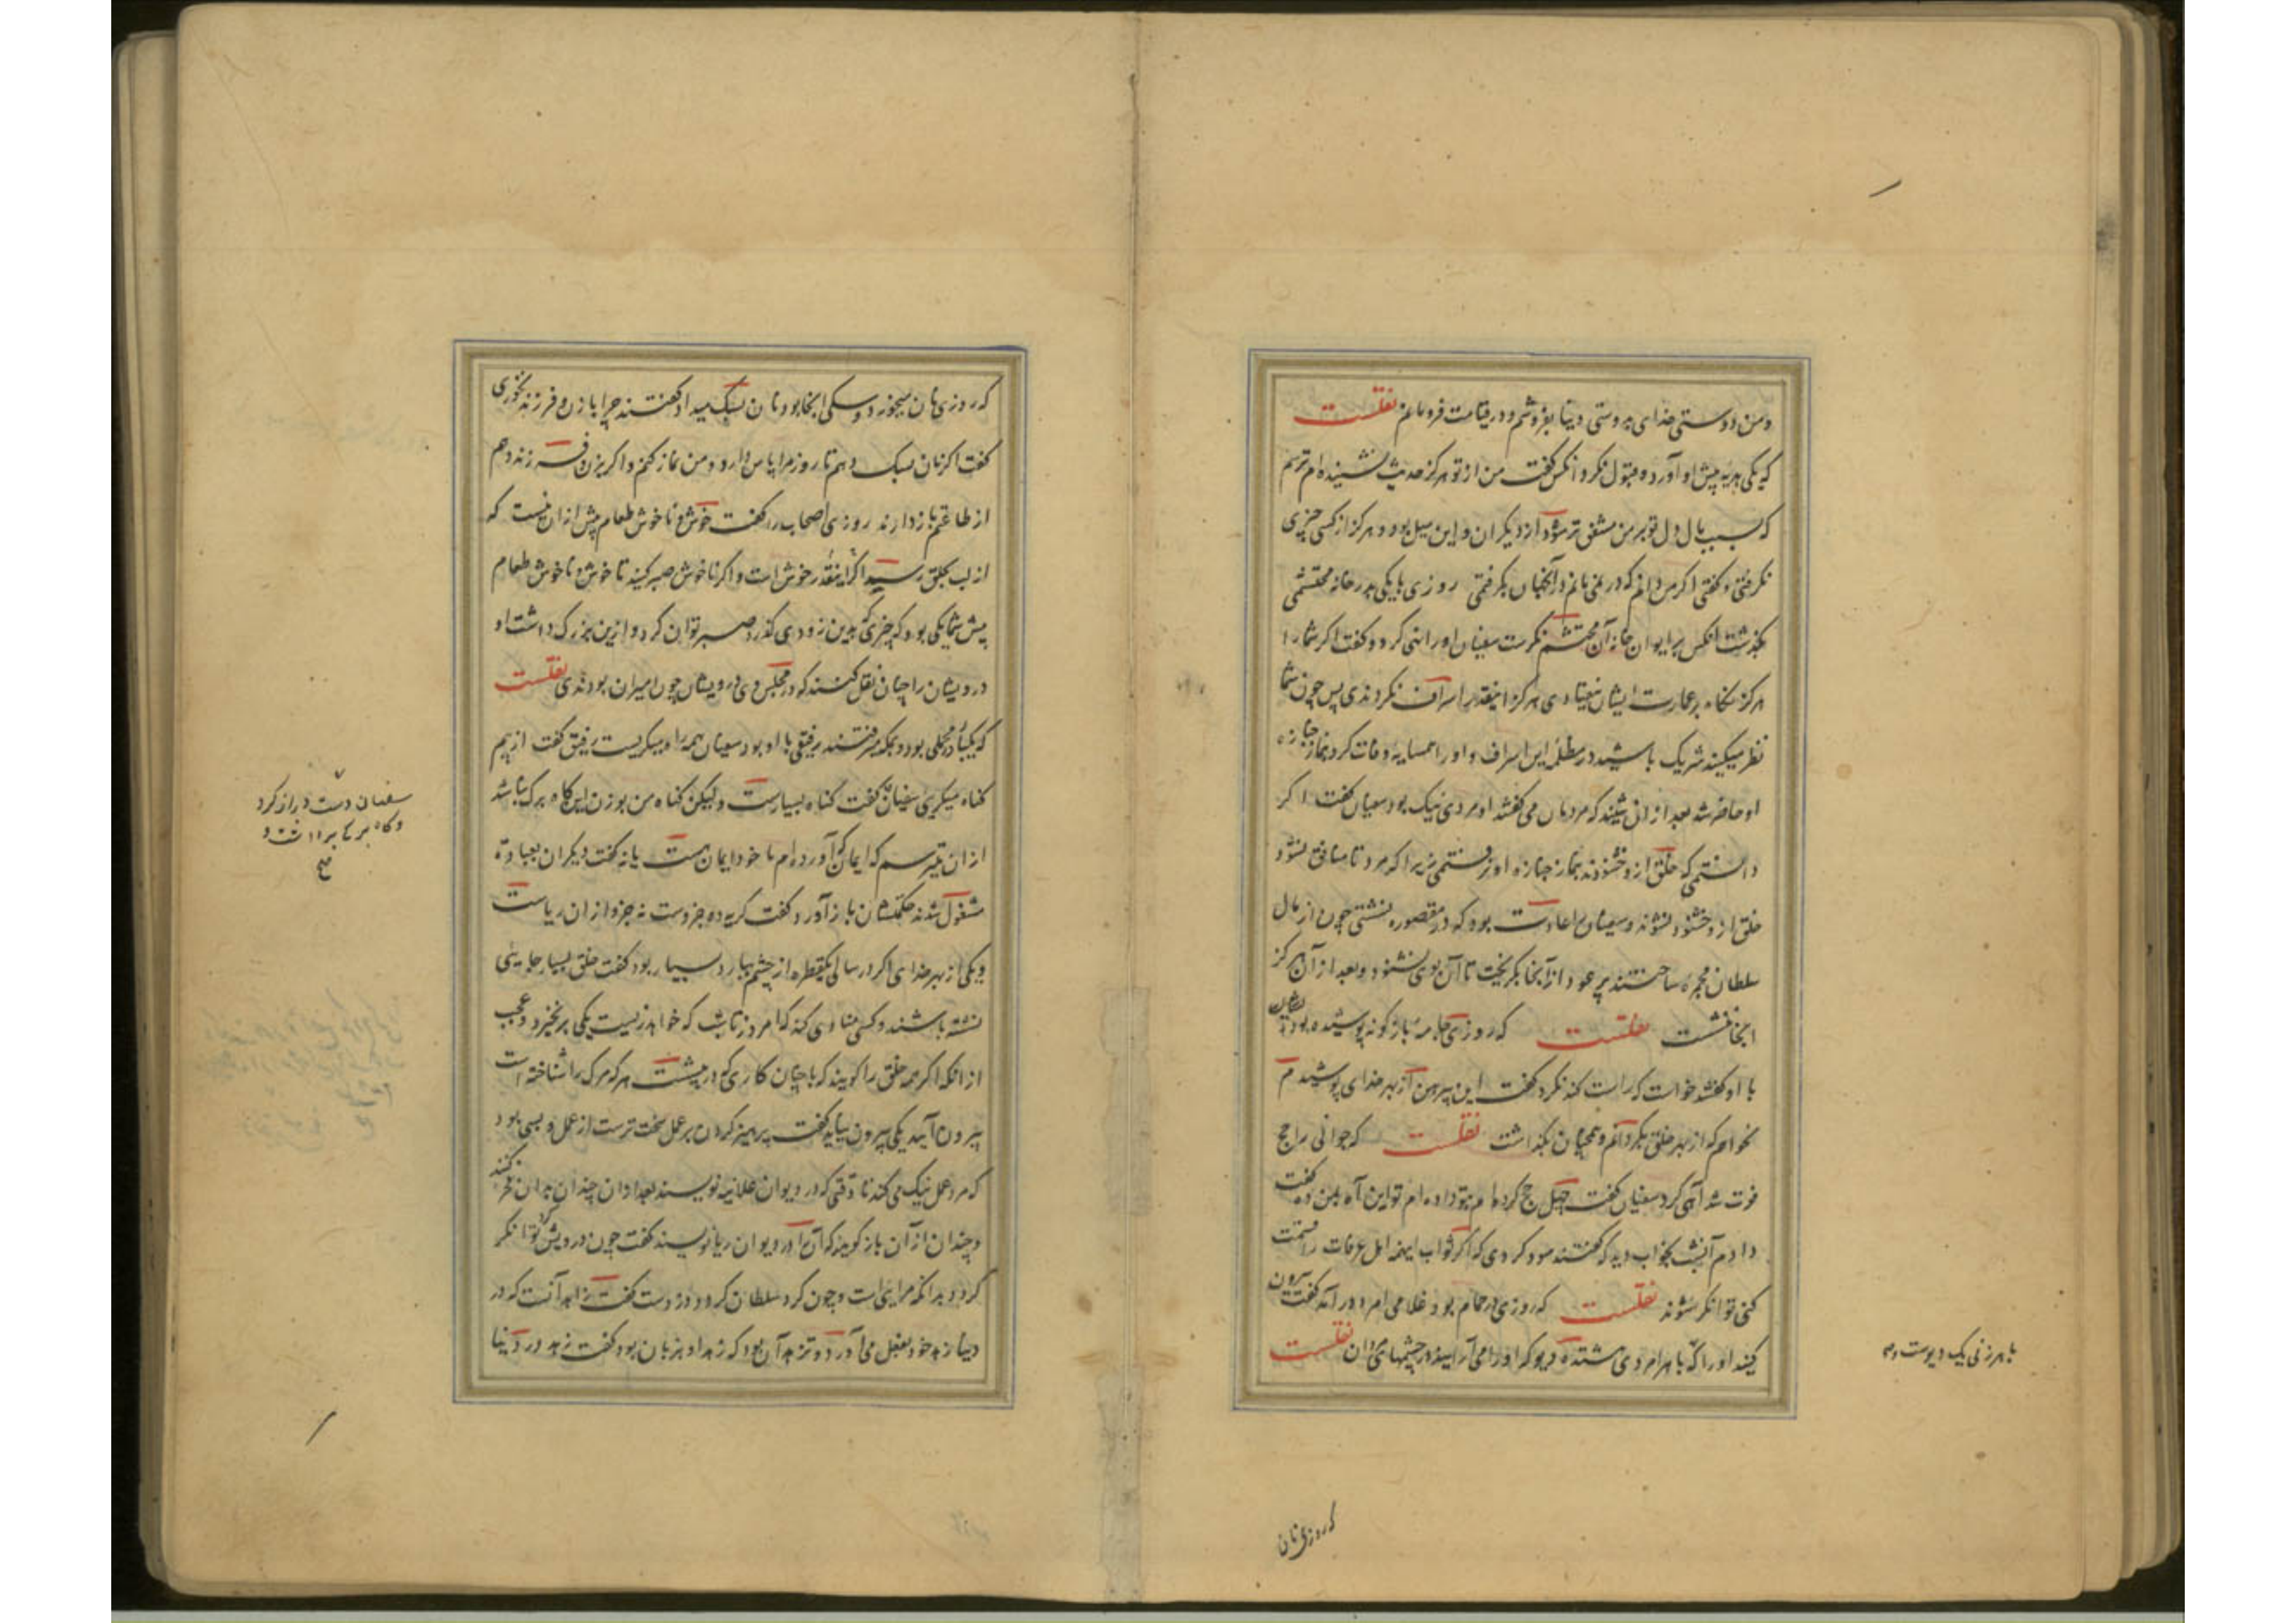 ومن دوستی خدای بدوستی دنیا بفروشم و در قیامت فرومانم نقلست
که یکی هدیه پیش او آورد و قبول نکرد آنکس گفت من از تو هرگز حدیث نشنیده‌ام ترسم
که بسبب مال دل تو بر من مشفق تر شود از دیگران و این میل بود و هرگز از کسی چیزی
نگرفتی و گفتی اگر می دانم که در نمی مانم در آنجهان بگرفتمی روزی با یکی بدر خانه محتشمی
بگذشت آنکس بر ایوان خانه آن محتشم نگرست سفیان او را نهی کرد و گفت اگر شما را
هرگز نگاه بر عمارت ایشان نیفتادی هرگز اینقدر اسراف نکردندی پس چون شما
نظر میکنید شریک باشید در مظلمه این اسراف و او را همسایه وفات کرد بنماز جنازه
او حاضر شد بعد از آن شنیدند که مردمان می گفتند او مردی نیک بود سفیان گفت اگر
دانستمی که خلق ازو خشنودند بنماز جنازه او نرفتمی زیرا که مرد تا منافق نشود
خلق ازو خشنود نشوند و سفیان را عادت بود که در مقصوره نشستی چون از مال
سلطان مجمره ساختند پر عود از آنجا بگریخت تا آن بوی نشنود و بعد از آن هرگز
آنجا ننشست نقلست که روزی جامه باز گونه پوشیده بود
با او گفتند خواست که راست کند نکرد گفت این پیرهن از بهر خدای پوشیدم
نخواهم که از بهر خلق بگردانم و همچنان بگذاشت نقلست که جوانی را حج
فوت شد آهی کرد سفیان گفت چهل حج کرده‌ام بتو داده ام تو این آه بمن ده گفت
دادم آنشب بخواب دید که گفتند سود کردی که اگر ثواب اینهمه اهل عرفات را قسمت
کنی توانگر شوند نقلست که روزی در حمام بود غلامی امرد در آمد گفت بیرون
کنید او را که با هر امردی هشتده دیو که او را می آرایند در چشمهای مردمان نقلست
با هر زنی یک دیوست و
که روزی نان
که روزی نان میخورد و سگی آنجا بود نان بسگ میداد گفتند چرا با زن و فرزند نخوری
گفت اگر نان بسگ دهم تا روز مرا پاس دارد و من نماز کنم و اگر بزن و فرزند دهم
از طاعتم باز دارند روزی اصحاب را گفت خوش و ناخوش طعام پیش از آن نیست که
از لب بحلق رسید اگر اینقدر خوش است و اگر ناخوش صبر کنید تا خوش و ناخوش طعام
پیش شما یکی بود که چیزی که بدین زودی گذرد صبر توان کرد و ازین بزرگ داشت او
درویشان را چنان نقل کنند که در مجلس وی درویشان چون امیران بودندی نقلست
که یکبار در محملی بود و بمکه میرفتند رفیقی با او بود سفیان همه راه میگریست رفیق گفت از بیم
گناه میگریی سفیان گفت گناه بسیارست ولیکن گناه من بوزن این کاه برگ نباشد
از آن میترسم که ایمان که آورده‌ام تا خود ایمان هست یا نه گفت دیگران بعبادت
مشغول شدند حکمتشان بار آورد و گفت گریه ده جزوست نه جزو از آن ریاست
و یکی از بهر خدای اگر در سالی یکقطره از چشم بیارد بسیار بود گفت خلق بسیار جایی
نشسته باشند و کسی منادی کند که امروز تا شب که خواهد زیست یکی برنخیزد و عجب
از آنکه اگر همه خلق را گویند که با چنان کاری که در پیشست هر که مرگ را ساخته است
بیرون آیید یکی بیرون نیاید گفت پرهیز کردن بر عمل سخت ترست از عمل و بسی بود
که مرد عمل نیک می کند تا وقتی که در دیوان علانیه نویسند بعد از آن چندان بدان فخر کند
و چندان از آن باز گوید که آن را در دیوان ریا نویسند گفت چون درویش گرد توانگر
گردد بدانکه مرایی است و چون گرد سلطان گردد دزدست گفت زاهد آنست که در
دنیا زهد خود بفعل می آورد و متزهد آن بود که زهد او بزبان بود گفت زهد در دنیا
سفیان دست دراز کرد
و کاه برگی برداشت و